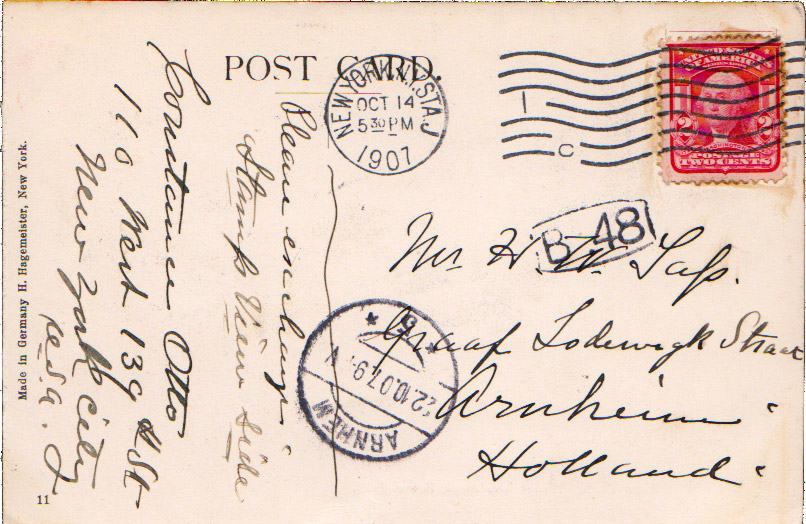 POST CARD.
NEW YORK, N.Y. STA. J
OCT 14
530 PM
1907
1
C
UNITED STATES
OF AMERICA
2 2
POSTAGE
TWO CENTS
B 48
Mr H. W. Taps.
Graaf Lodewyk Straat
Arnheim
Holland
ARNHEM
22.10.07.9 V
* 5 *
Please exchange
Stamps View Side
Constance Otto
110 West 139 St
New York City
U.S.A.
Made in Germany H. Hagemeister, New York.
11